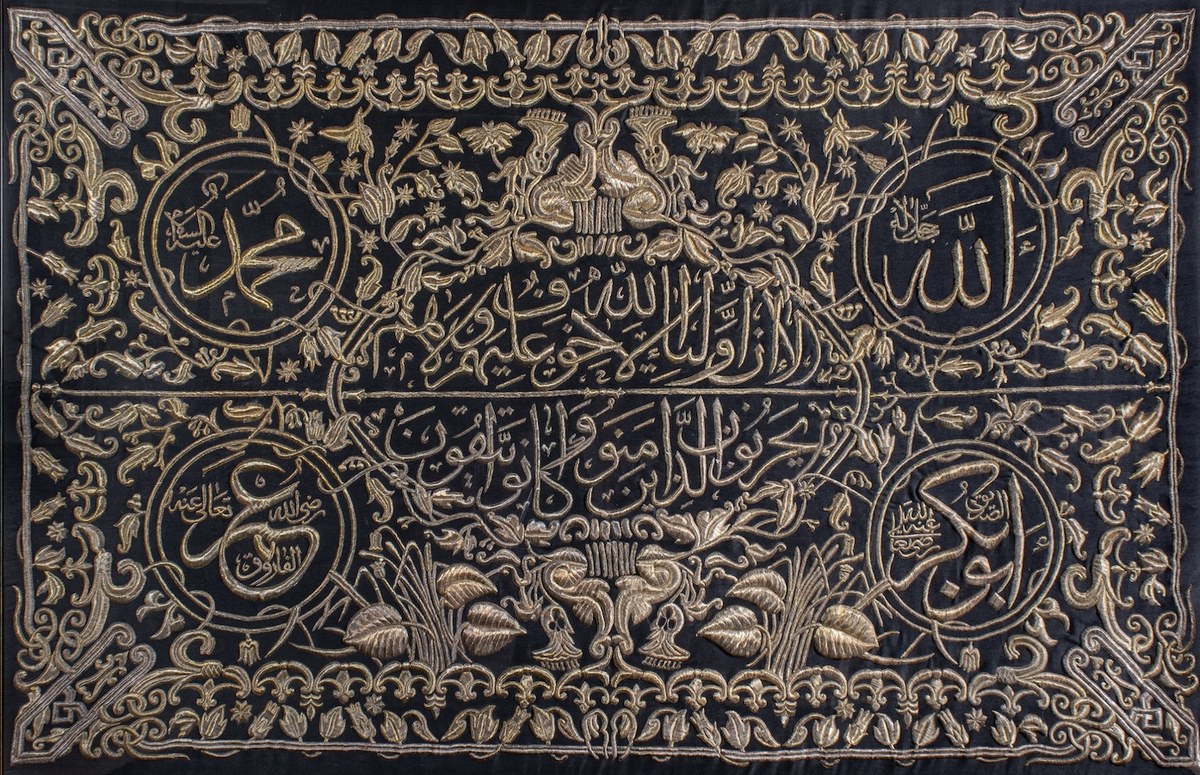 الله جل جلاله
محمد عليه السلام
الا ان اولياء الله لا خوف عليهم ولا هم
يحزنون الذين امنوا وكانوا يتقون
ابو بكر الصديق رضى الله تعالى عنه
عمر الفاروق رضى الله تعالى عنه